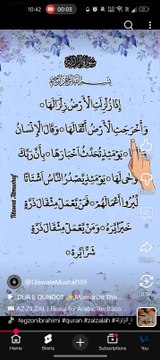 10:42
00:03
بِسْمِ اللَّهِ الرَّحْمَٰنِ الرَّحِيمِ
إِذَا زُلْزِلَتِ الْأَرْضُ زِلْزَالَهَا
وَأَخْرَجَتِ الْأَرْضُ أَثْقَالَهَا وَقَالَ الْإِنسَانُ
يَوْمَئِذٍ تُحَدِّثُ أَخْبَارَهَا بِأَنَّ رَبَّكَ
أَوْحَىٰ لَهَا يَوْمَئِذٍ يَصْدُرُ النَّاسُ أَشْتَاتًا
لِّيُرَوْا أَعْمَالَهُمْ فَمَن يَعْمَلْ مِثْقَالَ ذَرَّةٍ
خَيْرًا يَرَهُ وَمَن يَعْمَلْ مِثْقَالَ ذَرَّةٍ
شَرًّا يَرَهُ
@TilawateMushaf159
DUA E QUNOOT Memorize This
AZ ZILZAL | Beautiful Arabic Recitatio
#egzonibrahimi #quran #zalzalah
Home
Shorts
Subscriptions
You